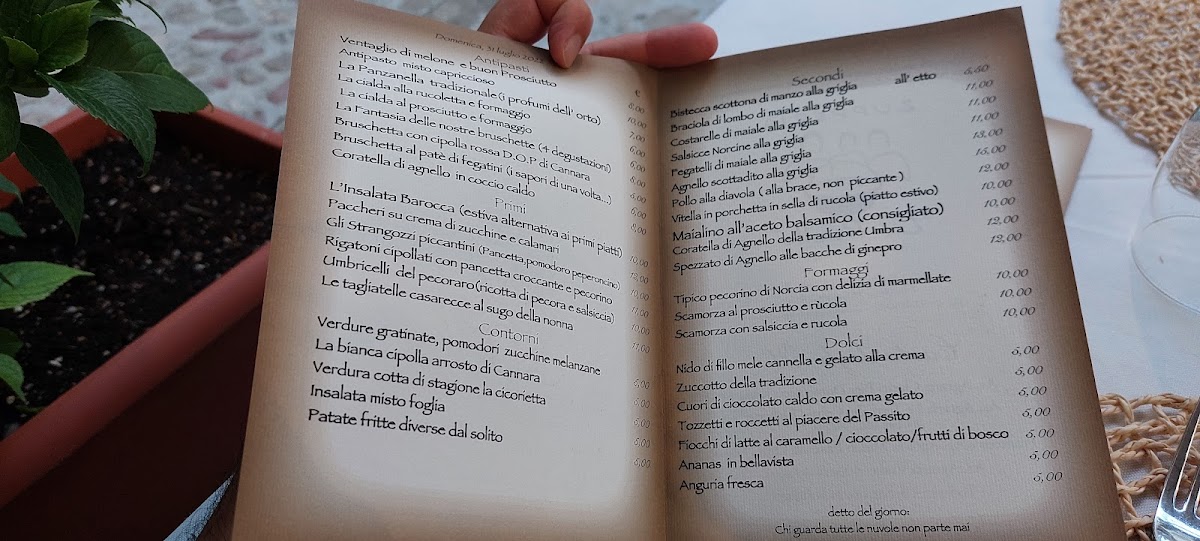 Domenica, 31 luglio
Antipasti
€
Ventaglio di melone e buon Prosciutto 8,00
Antipasto misto capriccioso 10,00
La Panzanella tradizionale (i profumi dell' orto) 7,00
La cialda alla rucoletta e formaggio 6,00
La cialda al prosciutto e formaggio 6,00
La Fantasia delle nostre bruschette (4 degustazioni) 8,00
Bruschetta con cipolla rossa D.O.P di Cannara 6,00
Bruschetta al patè di fegatini (i sapori di una volta...) 6,00
Coratella di agnello in coccio caldo 8,00
Primi
L'Insalata Barocca (estiva alternativa ai primi piatti) 10,00
Paccheri su crema di zucchine e calamari 12,00
Gli Strangozzi piccantini (Pancetta,pomodoro peperoncino) 10,00
Rigatoni cipollati con pancetta croccante e pecorino 11,00
Umbricelli del pecoraro (ricotta di pecora e salsiccia) 10,00
Le tagliatelle casarecce al sugo della nonna 11,00
Contorni
Verdure gratinate, pomodori zucchine melanzane
La bianca cipolla arrosto di Cannara
Verdura cotta di stagione la cicorietta
Insalata misto foglia
Patate fritte diverse dal solito
Secondi
Bistecca scottona di manzo alla griglia all' etto
Braciola di lombo di maiale alla griglia 11,00
Costarelle di maiale alla griglia 11,00
Salsicce Norcine alla griglia 11,00
Fegatelli di maiale alla griglia 13,00
Agnello scottadito alla griglia 15,00
Pollo alla diavola ( alla brace, non piccante ) 12,00
Vitella in porchetta in sella di rucola (piatto estivo) 10,00
Maialino all'aceto balsamico (consigliato) 10,00
Coratella di Agnello della tradizione Umbra 12,00
Spezzato di Agnello alle bacche di ginepro 12,00
Formaggi
Tipico pecorino di Norcia con delizia di marmellate 10,00
Scamorza al prosciutto e rùcola 10,00
Scamorza con salsiccia e rucola 10,00
Dolci
Nido di fillo mele cannella e gelato alla crema 5,00
Zuccotto della tradizione 5,00
Cuori di cioccolato caldo con crema gelato 5,00
Tozzetti e roccetti al piacere del Passito 5,00
Fiocchi di latte al caramello / cioccolato/frutti di bosco 5,00
Ananas in bellavista 5,00
Anguria fresca 5,00
detto del giorno:
Chi guarda tutte le nuvole non parte mai